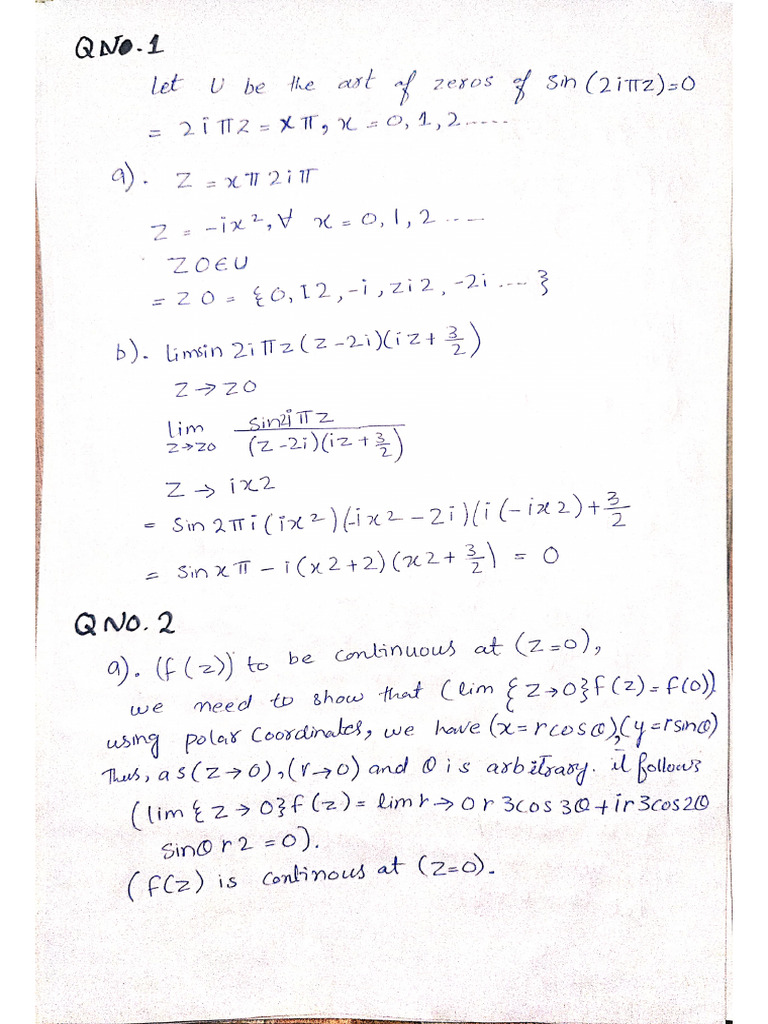 QNO.1
Let U be the art of zeros of sin(2iπz)=0
= 2iπz = xπ, x = 0, 1, 2 .....
a). Z = xπ2iπ
Z = -ix², ∀ x = 0, 1, 2 ....
Z0∈U
= Z0 = {0, I2, -i, zi2, -2i .... }
b). limsin 2iπz(z-2i)(iz+3/2)
Z→z0
lim z→z0 sin2iπz/(z-2i)(iz+3/2)
Z → ix2
= sin2πi(ix²)(-ix2-2i)(i(-ix2)+3/2
= sinxπ-i(x2+2)(x2+3/2) = 0
QNO.2
a). (f(z)) to be continuous at (z=0),
we need to show that (lim{z→0}f(z)=f(0))
using polar coordinates, we have (x=rcosθ),(y=rsinθ)
Thus, as(z→0),(r→0) and θ is arbitrary. it follows
(lim{z→0}f(z)=limr→0r3cos3θ+ir3cos2θ
sinθr2=0).
(f(z) is continous at (z=0).